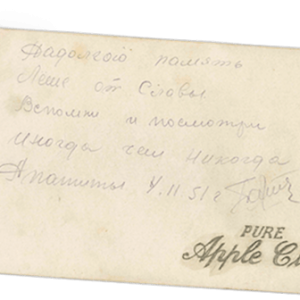 Надолгою память
Леше от Славы
Вспомни и посмотри
иногда чем никогда
Апатиты 4.11.51 г
PURE
Apple